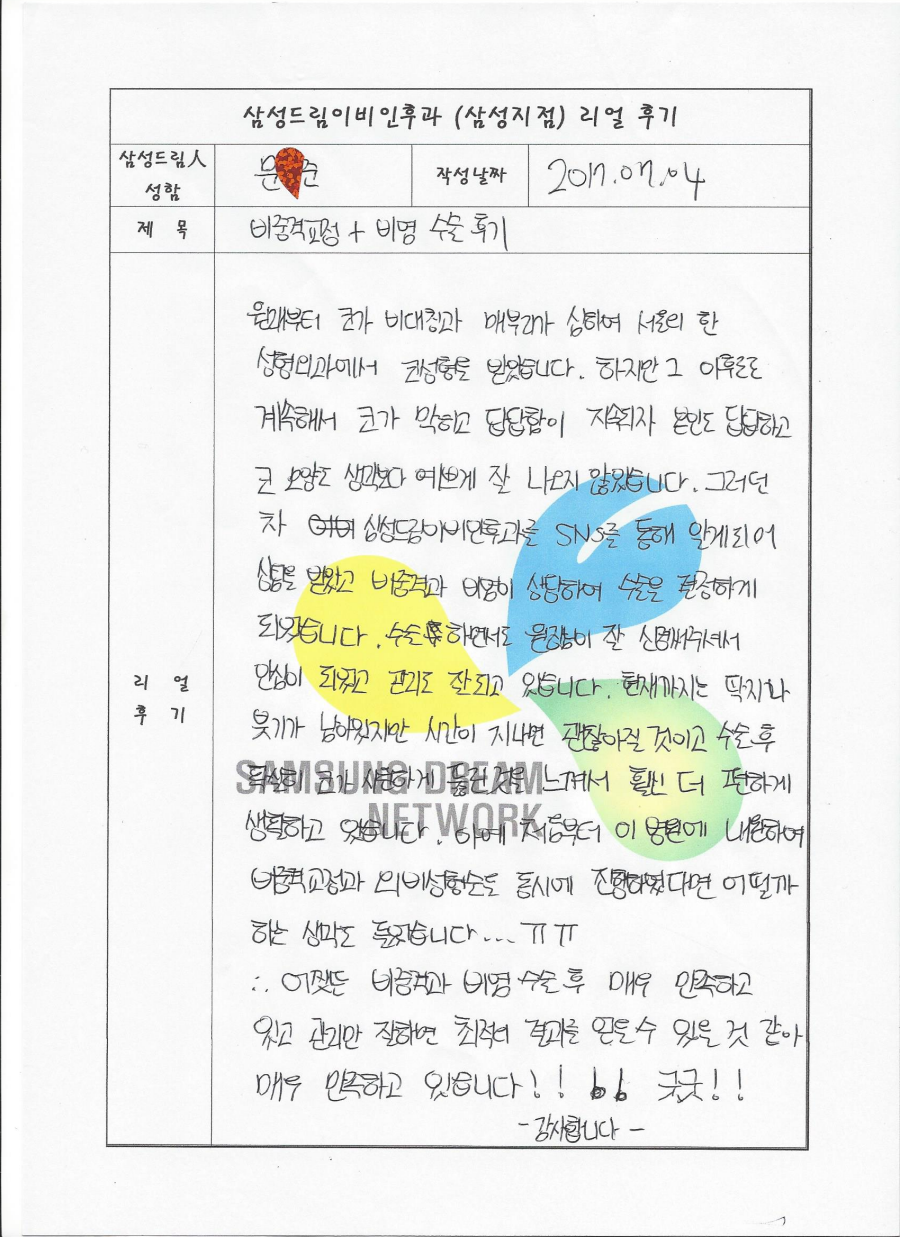 삼성드림이비인후과 (삼성지점) 리얼 후기
삼성드림人
성함
문 준
작성날짜
2017.07.04
제 목
비중격교정 + 비염 수술 후기
리 얼
후 기
원래부터 코가 비대칭과 매부리가 심하여 서울의 한
성형외과에서 코성형을 받았습니다. 하지만 그 이후로도
계속해서 코가 막히고 답답함이 지속되자 본인도 답답하고
코 모양도 생각보다 예쁘게 잘 나오지 않았습니다. 그러던
차 삼성드림이비인후과를 SNS를 통해 알게되어
상담을 받았고 비중격과 비염이 상당하여 수술을 결정하게
되었습니다. 수술 하면서도 원장님이 잘 신경써주셔서
안심이 되었고 관리도 잘 되고 있습니다. 현재까지는 딱지와
붓기가 남아있지만 시간이 지나면 괜찮아질 것이고 수술 후
확실히 코가 시원하게 뚫린 것을 느껴서 훨씬 더 편하게
생활하고 있습니다. 아예 처음부터 이 병원에 내원하여
비중격교정과 외비성형수술도 동시에 진행하였다면 어떨까
하는 생각도 들었습니다... ㅠㅠ
∴ 어쨋든 비중격과 비염 수술 후 매우 만족하고
있고 관리만 잘하면 최적의 결과를 얻을 수 있을 것 같아
매우 만족하고 있습니다!! bb 굿굿!!
- 감사합니다 -
SAMSUNG DREAM
NETWORK